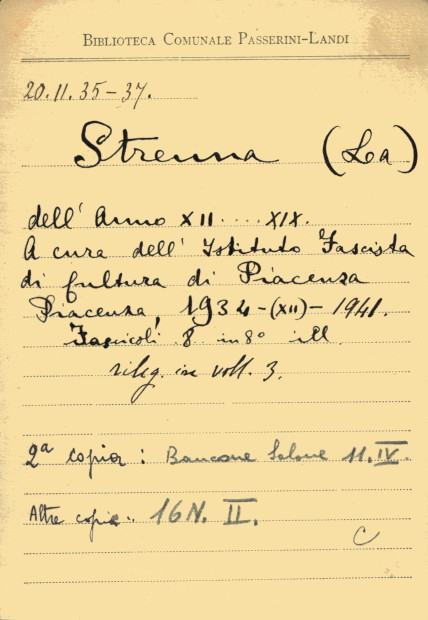 BIBLIOTECA COMUNALE PASSERINI-LANDI
20.11.35-37.
Strenna (La)
dell' Anno XII .... XIX.
A cura dell' Istituto Fascista
di Cultura di Piacenza
Piacenza, 1934-(XII)-1941.
Fascicoli 8 in 8° ill.
rileg. in voll. 3.
2a copia: Bancone Salone 11.IV.
Altre copie.. 16 N. II.
C